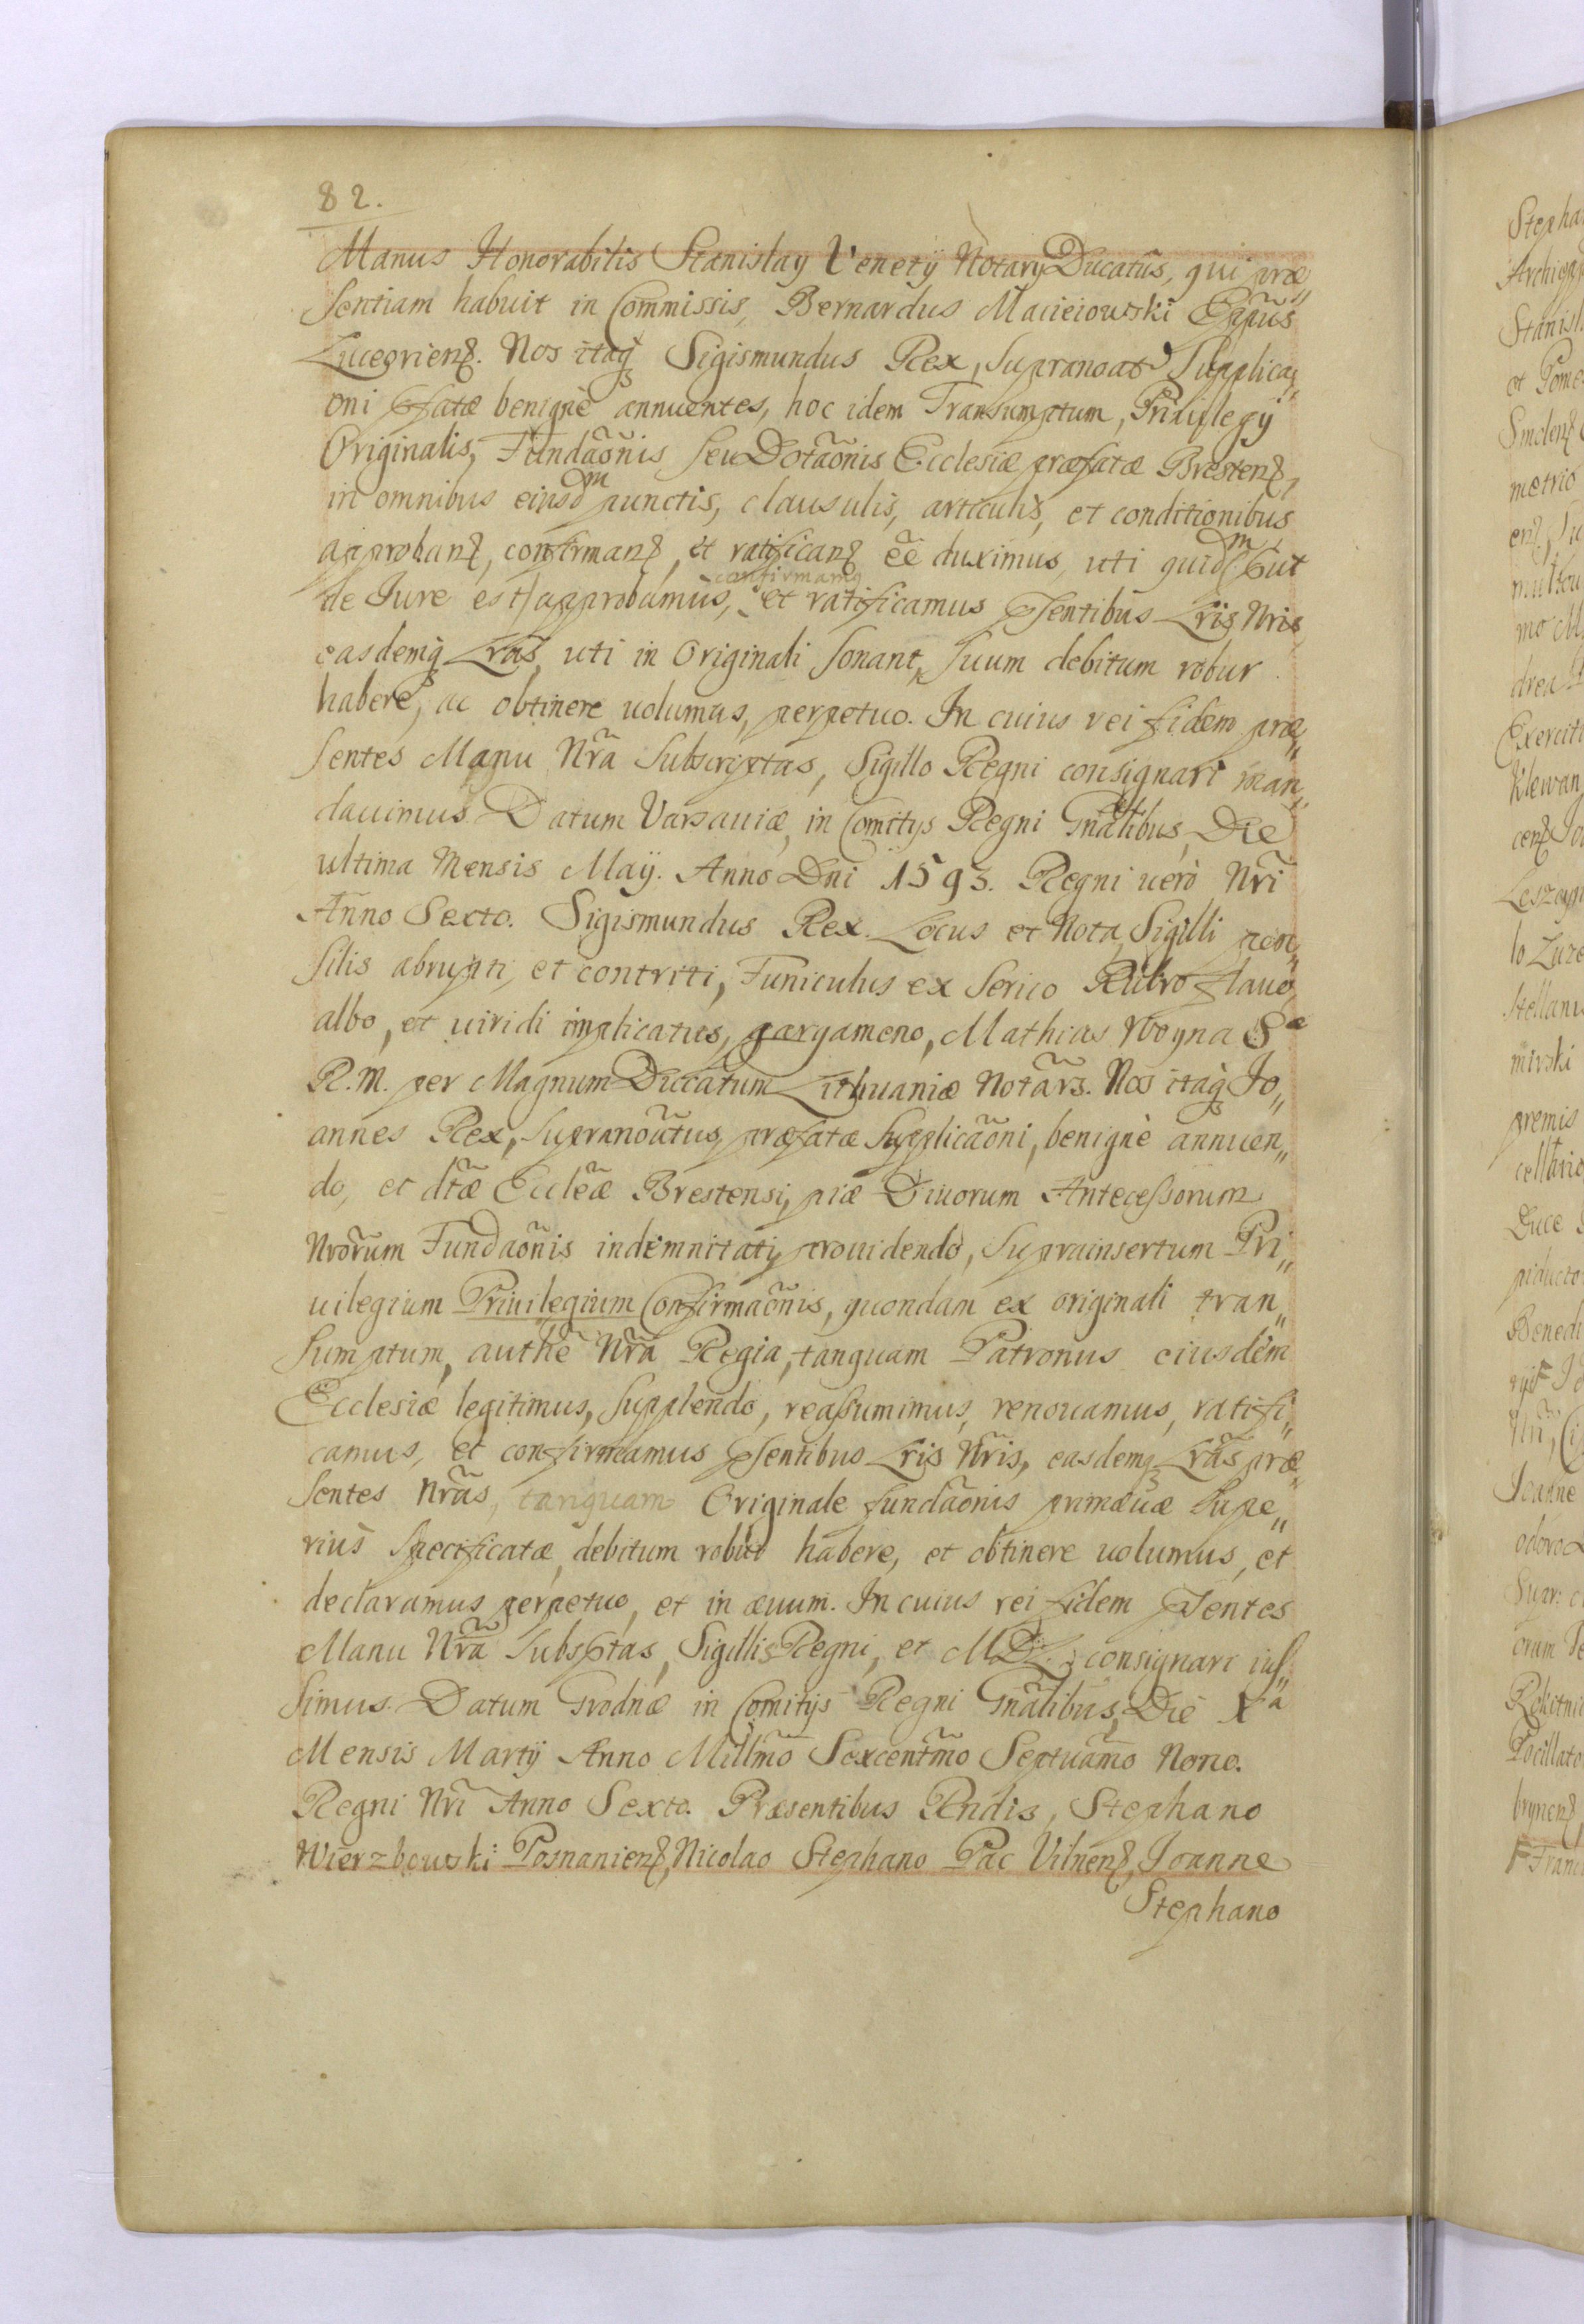 82.
Manus Honorabilis Stanislay Venetÿ Notarÿ Ducatũs, qui præ„
sentiam habuit in Commissis, Bernardus Macieiowski Epũs
Luceorienȝ. Nos itaq̃ Sigismundus Rex, supranoat Supplica„
oni Pfatæ benignè annuentes, hoc idem Transumptum, Priuilegÿ
Originalis, Fundaõnis seu Dotaõnis Ecclesiæ præfatæ Brestenȝ,
in omnibus eiusdᵐ punctis, clausulis, articulis, et conditionibus
approbanȝ, confirmanȝ, et ratificanȝ eẽ duximus, uti quidᵐ (: ut
de Jure est) approbamus, confirmamq̃ et ratificamus Psentibus Lris Nris
easdemq̃ Lras, uti in Originali sonant, suum debitum robur
habere, ac obtinere uolumus, perpetuo. In cuius rei fidem præ„
sentes Manu Nrã Subscriptas, Sigillo Regni consignari man„
dauimus. Datum Varsauiæ, in Comitÿs Regni Gnãlibus, Die
ultima Mensis Maÿ. Anno Dni 1593. Regni uerò Nrĩ
Anno Sexto. Sigismundus Rex. Locus et Nota Sigilli pen„
silis abrupti, et contriti, Funiculus ex Serico Rubro flauo,
albo, et uiridi implicatus, pargameno, Mathias Woyna Sæ
R. M. per Magnum Ducatum Lithuaniæ Notãrs. Nos itaq̃ Jo„
annes Rex, supranoũtus, præfatæ Supplicaõni, benignè annuen„
do, et dtæ̃ Ecclẽæ Brestensi, piæ Diuorum Antecessorum
Nrorũm Fundaõnis indemnitati, prouidendo, suprainsertum Pri„
uilegium Priuilegium Confirmaõnis, quondam ex originali tran„
sumptum, authẽ Nrã Regia, tanquam Patronus eiusdem
Ecclesiæ legitimus, supplendo, reassumimus, renouamus, ratifi„
camus, et confirmamus Psentibus Lris Nris, easdemq̃ Lrãs præ„
sentes Nrãs, tanquam Originale fundaõnis primæuæ supe„
rius specificatæ, debitum robur habere, et obtinere uolumus, et
declaramus perpetuo, et in æuum. In cuius rei fidem Psentes
Manu Nrã Subsptas, Sigillis Regni, et M.D.L. consignari ius„
simus. Datum Grodnæ in Comitÿs Regni Gnãlibus, Die Xᵃ
Mensis Martÿ Anno Millm̃o Sexcentm̃o Septuam̃o Nono.
Regni Nrĩ Anno Sexto. Præsentibus Rndis, Stephano
Wierzbowski Posnanienȝ, Nicolao Stephano Pac Vilnenȝ, Joanne
Stephano